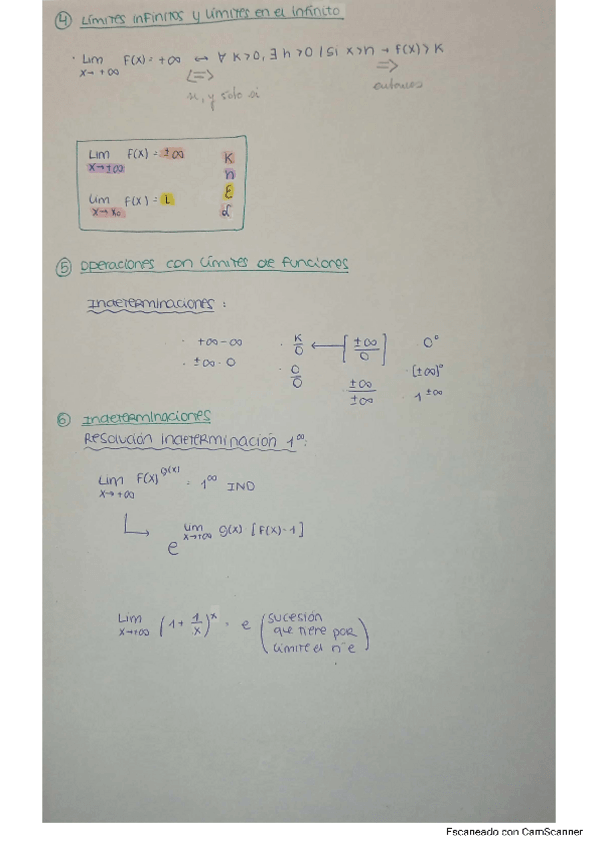 ④ Límites infinitos y límites en el infinito
· Lim F(x) = +∞ ↔ ∀ K>0, ∃ h>0 / si x>h → f(x)>K
x→+∞ <=> =>
si, y solo si entonces
Lim F(x) = ±∞ K
x→±∞ n
Lim F(x) = L ε
x→x₀ δ
⑤ Operaciones con límites de funciones
Indeterminaciones:
· +∞-∞ · K/0 ← [±∞/0] 0⁰
· ±∞·0 · 0/0 ±∞/±∞ · (±∞)⁰
· 1^±∞
⑥ Indeterminaciones
Resolución indeterminación 1^∞:
Lim F(x)^g(x) = 1^∞ IND
x→+∞
e^ lim x→+∞ g(x)·[F(x)-1]
Lim (1+ 1/x)^x = e (sucesión
x→+∞ que tiene por
límite el nº e)
Escaneado con CamScanner